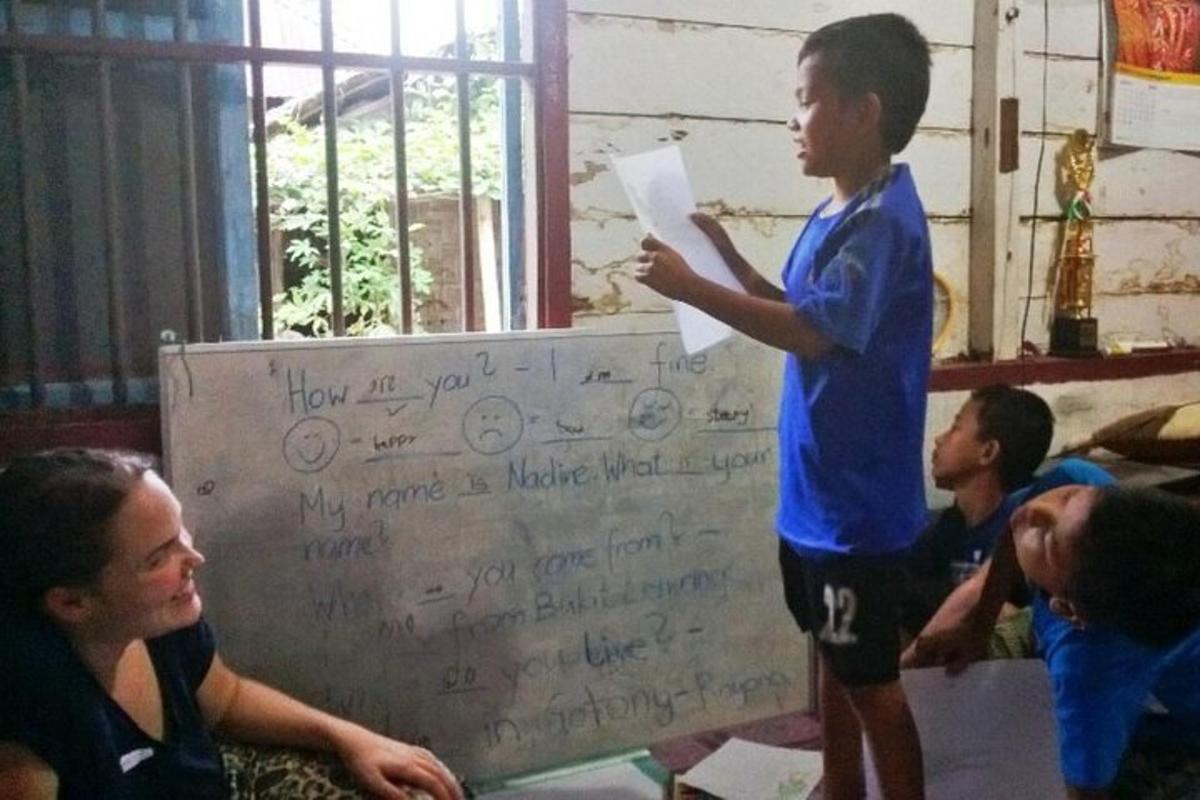 How are you? - I am fine.
= happy = sad = sleepy
My name is Nadine. What is your
name?
you come from? -
from Bukit Lawang
do you live? -
in Gotong-Royong
12